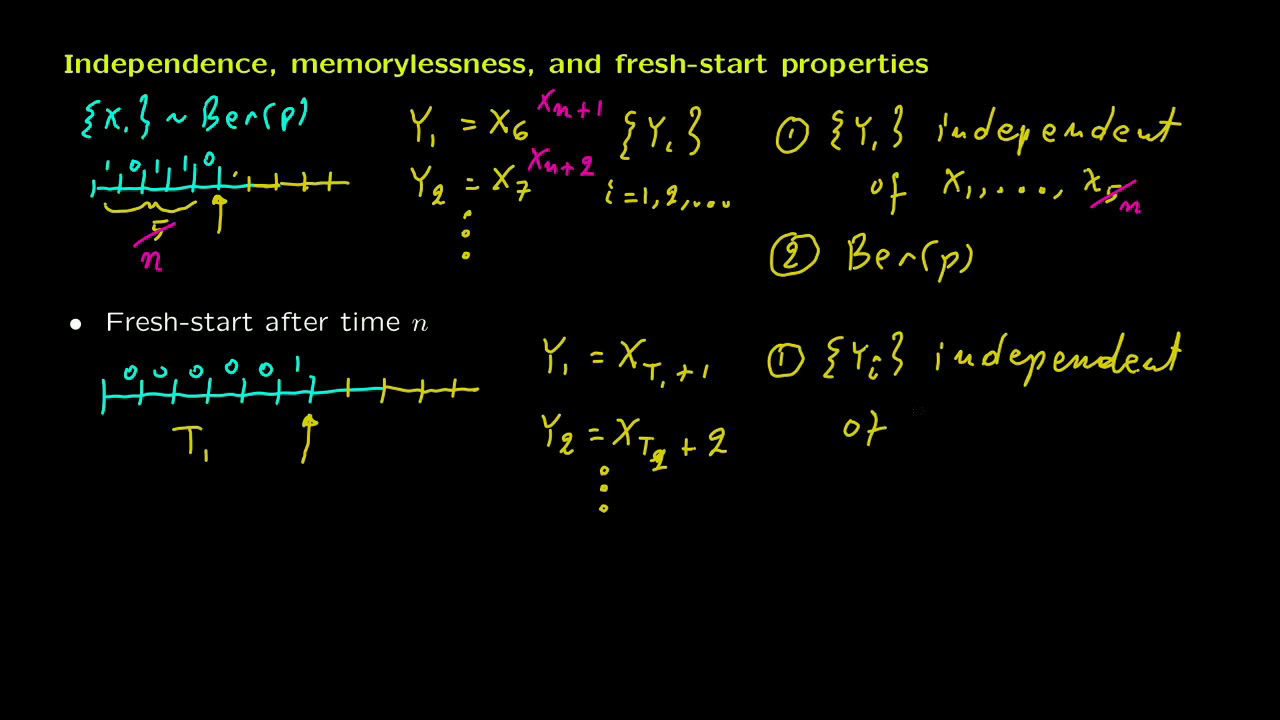 Independence, memorylessness, and fresh-start properties
{X_i} ~ Ber(p)
1 0 1 1 0
5
n
Y_1 = X_6 X_{n+1}
Y_2 = X_7 X_{n+2}
⋮
{Y_i}
i = 1, 2, ...
① {Y_i} independent
of X_1, ..., X_5 n
② Ber(p)
• Fresh-start after time n
0 0 0 0 0 1
T_1
Y_1 = X_{T_1 + 1}
Y_2 = X_{T_2 + 2}
⋮
① {Y_i} independent
of